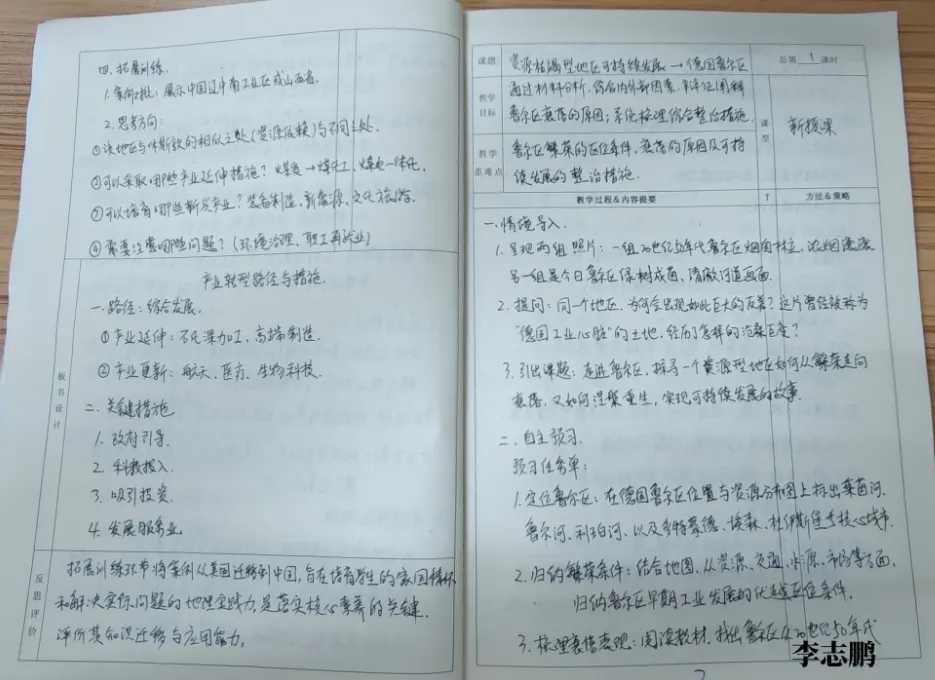 四. 拓展训练.
1. 案例: 展示中国辽中南工业区或山西省.
2. 思考方向:
①该地区与休斯敦的相似之处(资源依赖)与不同之处.
②可以采取哪些产业延伸措施? 煤炭→煤化工、煤电一体化.
③可以培育哪些新兴产业? 装备制造、新能源、文化旅游.
④需要注意哪些问题? (环境治理、职工再就业)
板书设计
产业转型路径与措施.
一. 路径: 综合发展.
①产业延伸: 石化深加工、高端制造.
②产业更新: 航天、医疗、生物科技.
二. 关键措施
1. 政府引导.
2. 科教投入.
3. 吸引投资.
4. 发展服务业.
反思评价
拓展训练环节将案例从美国迁移到中国, 旨在培育学生的家国情怀
和解决实际问题的地理实践力, 是落实核心素养的关键.
评价其知识迁移与应用能力.
课题
资源枯竭型地区可持续发展→德国鲁尔区
总第 1 课时
教学目标
通过材料分析, 结合内外部因素, 辩证理解
鲁尔区衰落的原因; 系统梳理综合整治措施.
课型
新授课
教学重难点
鲁尔区繁荣的区位条件, 衰落的原因及可持
续发展的整治措施.
教学过程&内容提要
T
方法&策略
一. 情境导入.
1. 呈现两组照片: 一组20世纪50年代鲁尔区烟囱林立, 浓烟滚滚
另一组是今日鲁尔区绿树成荫, 清澈河道画面.
2. 提问: 同一个地区, 为何会出现如此巨大的反差? 这片曾经被称为
"德国工业心脏"的土地, 经历了怎样的沧桑巨变?
3. 引出课题: 走进鲁尔区, 探寻一个资源型地区如何从繁荣走向
衰落, 又如何涅槃重生, 实现可持续发展的故事.
二. 自主预习.
预习任务单:
1. 定位鲁尔区: 在德国鲁尔区位置与资源分布图上标出莱茵河.
鲁尔河、利珀河、以及多特蒙德、埃森、杜伊斯堡等核心城市.
2. 归纳繁荣条件: 结合地图, 从资源、交通、水源、市场等方面,
归纳鲁尔区早期工业发展的优越区位条件.
3. 梳理衰落表现: 阅读教材, 找出鲁尔区从20世纪50年代
李志鹏